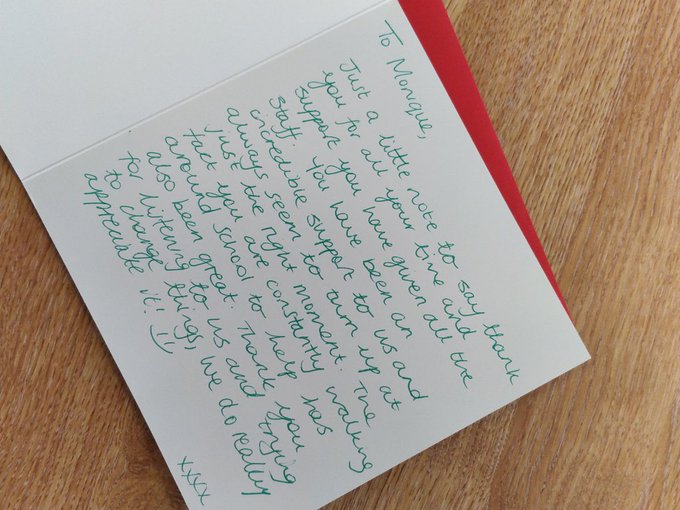 To Monique,
Just a little note to say thank
you for all your time and
support you have given all the
staff. You have been an
incredible support to us and
always seem to turn up at
just the right moment. The
fact you are constantly walking
around school to help has
also been great. Thank you
for listening to us and trying
to change things, we do really
appreciate it! :)
xxxx